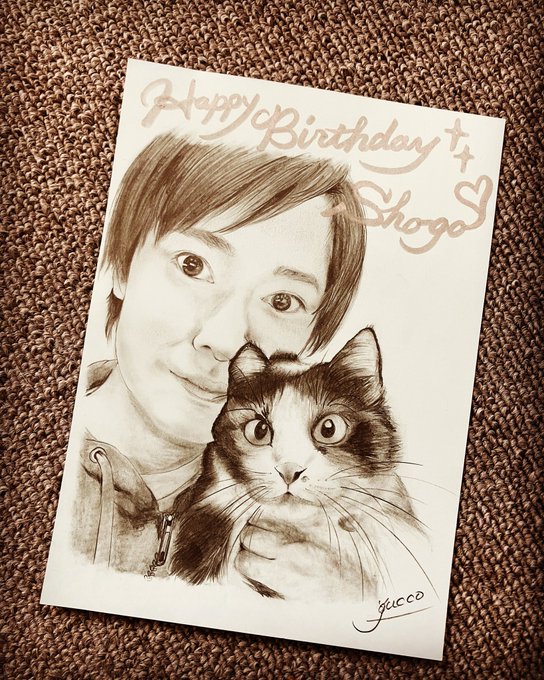 Happy Birthday
Shogo
yucco